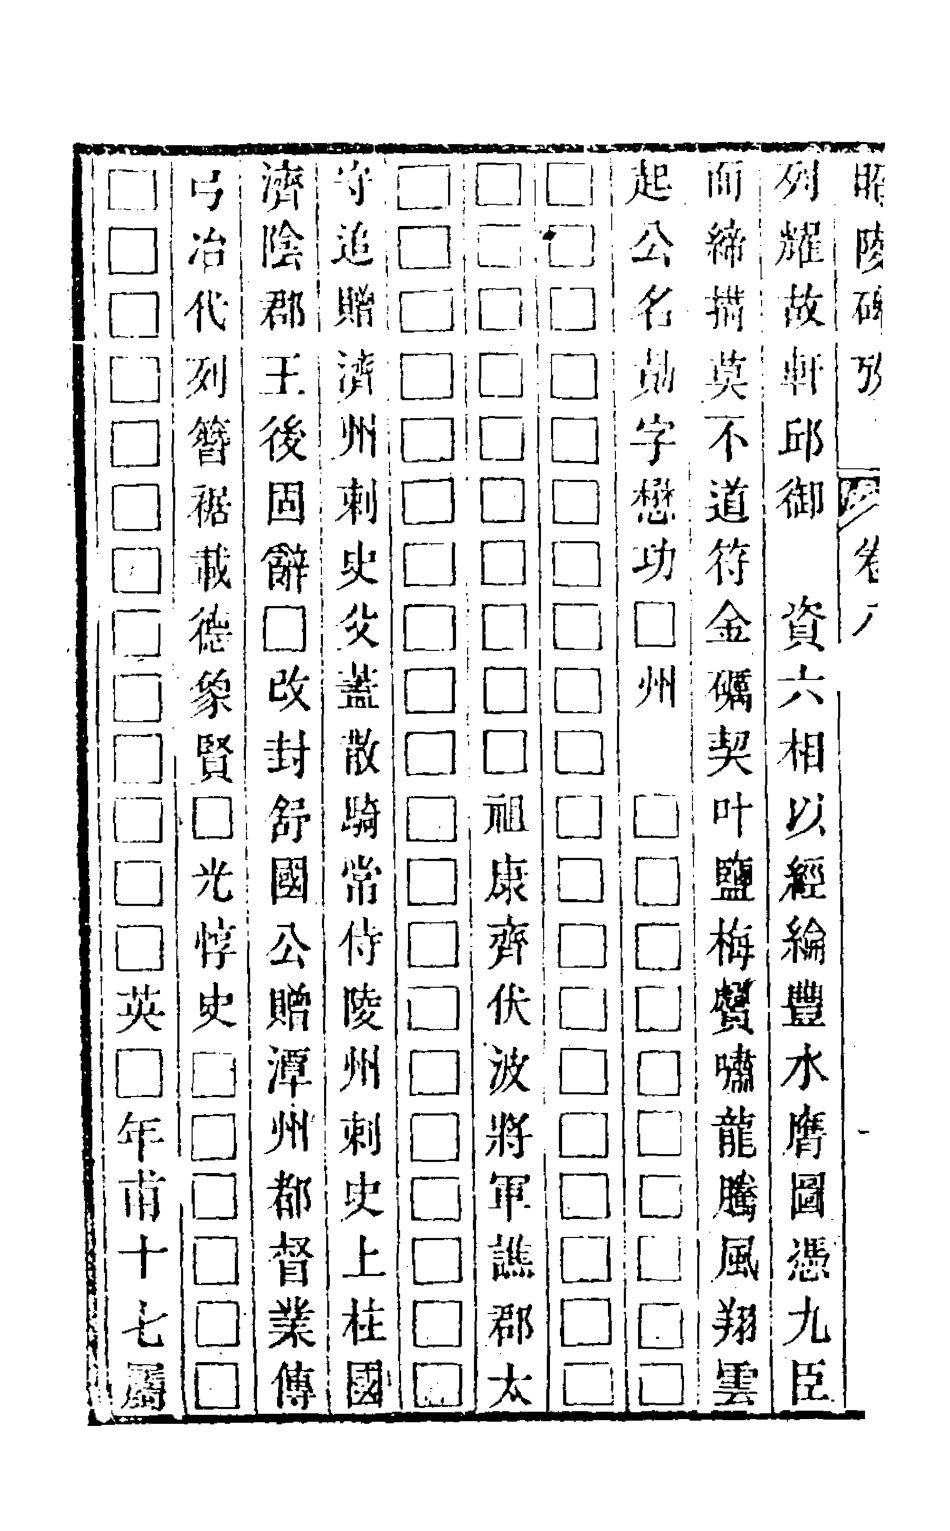 昭陵碑攷　卷八
列耀故軒邱御　資六相以經綸豐水膺圖憑九臣
而締搆莫不道符金礪契叶鹽梅贊嘯龍騰風翔雲
起公名勣字懋功□州　□□□□□□□□□□
□□□□□□□□□□□□□□□□□□□□
□□□□□□□□□□祖康齊伏波將軍譙郡太
□□□□□□□□□□□□□□□□□□□□
守追贈濟州刺史父蓋散騎常侍陵州刺史上柱國
濟陰郡王後固辭□改封舒國公贈潭州都督業傳
弓冶代列簪裾載德象賢□光惇史□□□□□□
□□□□□□□□□□□□□英□年甫十七屬